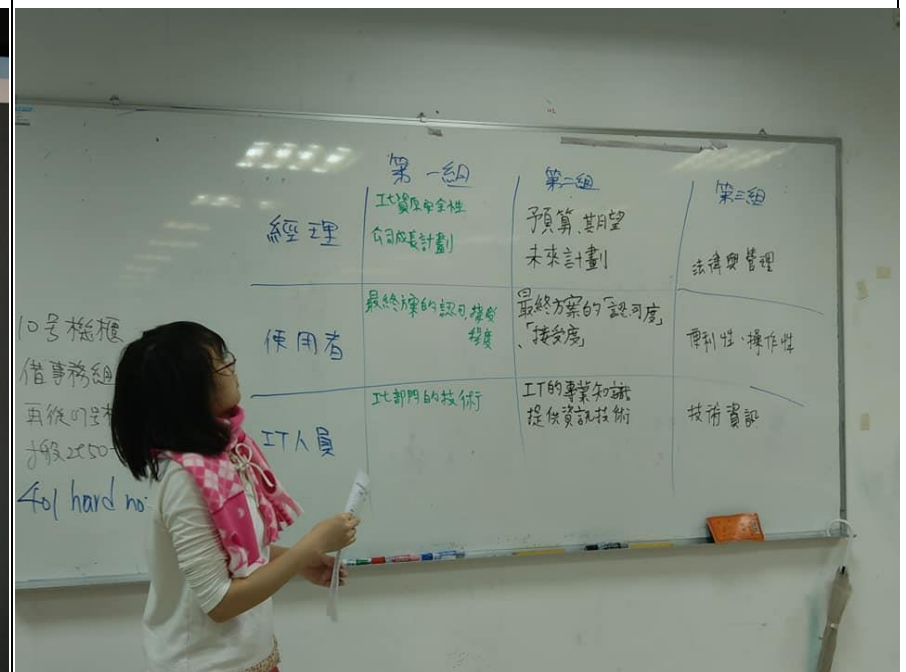 第一組
第二組
第三組
經理
工业資原安全性
公司成長計劃
預算、期望
未來計劃
法律與管理
使用者
最終方案的認可,接受
程度
最終方案的「認可度」
、「接受度」
便利性、操作性
IT人員
部門的技術
IT的專業知識
提供資訊技術
技術資訊
10号機櫃
借事務組
再後の
401 hard no.